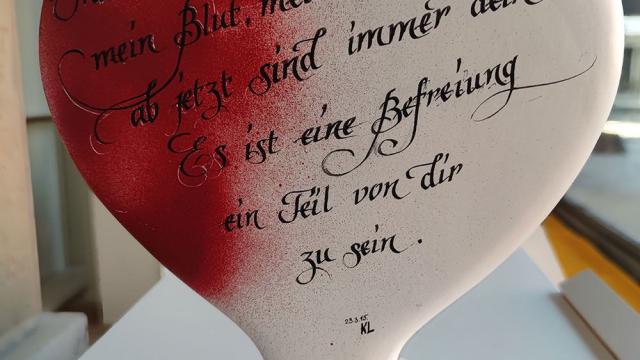 mein Blut, mein
ab jetzt sind immer dein
Es ist eine Befreiung
ein Teil von dir
zu sein.
23.3.15.
KL